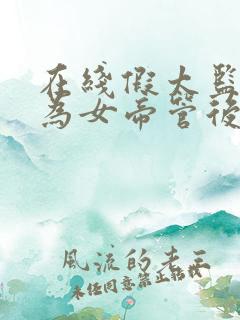 在线假太监
为女帝管後
風流的老王
未经同意禁止转载